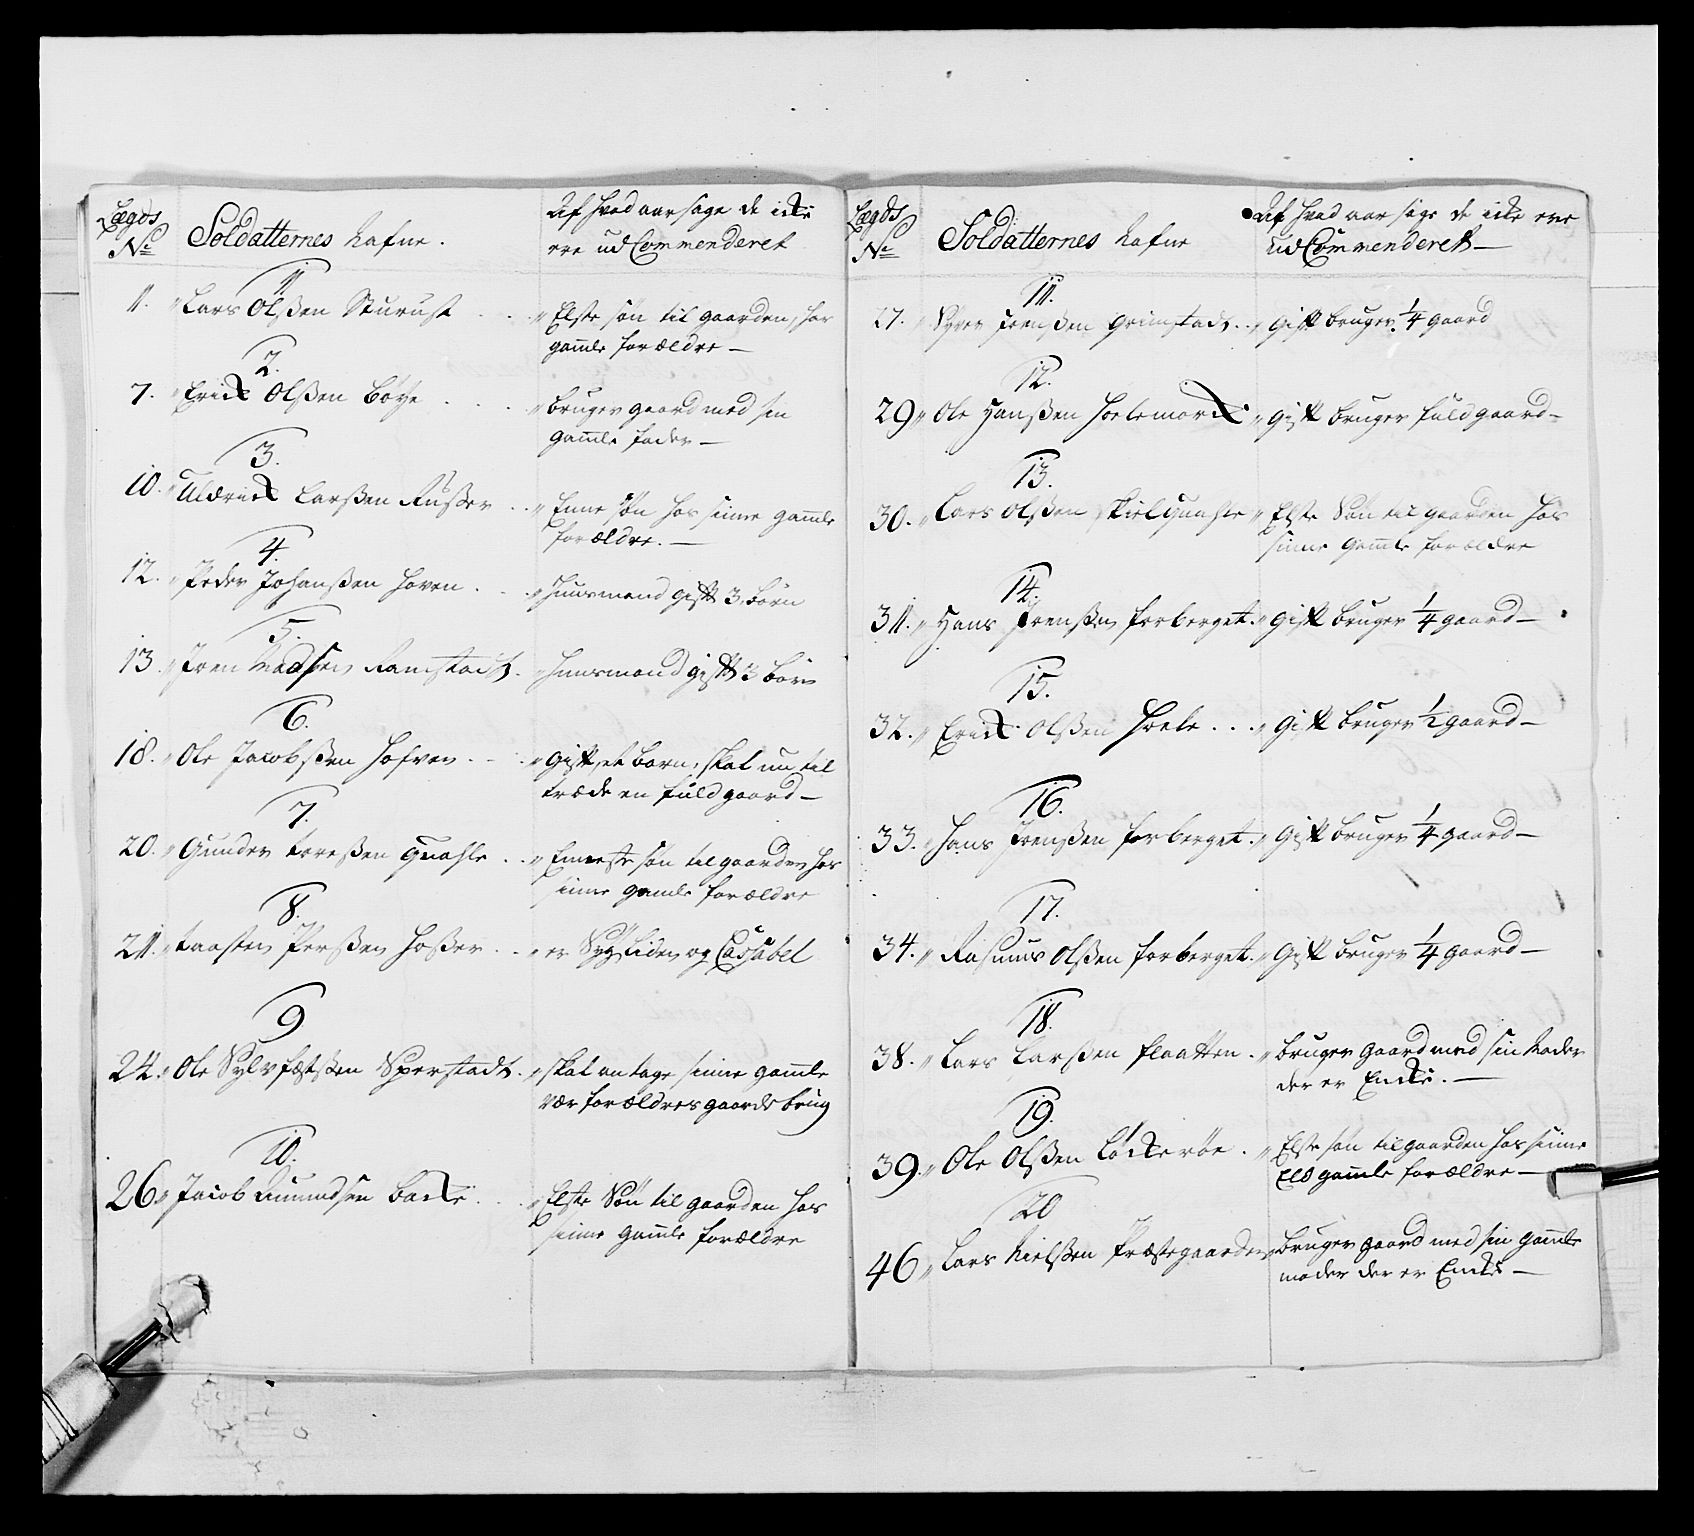 Lægds
No
Soldatternes Nafne.
Af hvad aarsage de icke
ere ud Commenderet
1.
1. Lars Olsßen Sturust
Elste søn til gaarden, har
gamle forældre
2.
7. Erick Olsßen Böye
bruger gaard med sin
gamle fader
3.
10. Uldrick Larsßen
Enne søn hos sinne gamle
forældre.
4.
12. Peder Johansßen Hoven
Huusmand gift 3 børn
5.
13. Joen Madsen Ramstadt
Huusmand gift 3 børn
6.
18. Ole Jacobsßen
gift, et barn, skal nu til
træde en fuld gaard
7.
20. Gunder Toresßen Quahle
Enneste søn til gaarden hos
sinne gamle forældre
8.
21. Persßen
er Syg liden og Cassabel
9
24. Ole Sperstadt
skal antage sinne gamle
vær forældres gaards brug
10.
26 Jacob Amundsen Backe
Elste Søn til gaarden hos
sinne gamle forældre
Lægds
No
Soldatternes Nafne
Af hvad aarsage de icke ere
ud Commenderet
11.
27. Joensßen Grimstadt
gift bruger 1/4 gaard
12.
29 Ole Hansßen Hoelemarck
gift bruger fuld gaard
13.
30. Lars Olsßen
Elste Søn til gaarden hos
sinne gamle forældre
14.
31. Hans Joensßen Forberget
gift bruger 1/4 gaard
15.
32. Erick Olsßen Hoele
gift bruger 1/2 gaard
16.
33. Hans Joensßen Forberget
gift bruger 1/4 gaard
17.
34. Rasmus Olsßen Forberget
gift bruger 1/4 gaard
18.
38. Lars Larsßen Flaatten
bruger gaard med sin Moder
der er Encke.
19.
39. Ole Olsßen Løckerøe
Elste søn til gaarden hos sinne
Eld gamle forældre
20
46 Lars Nielsßen Præstegaarden
bruger gaard med sin gamle
moder der er Encke